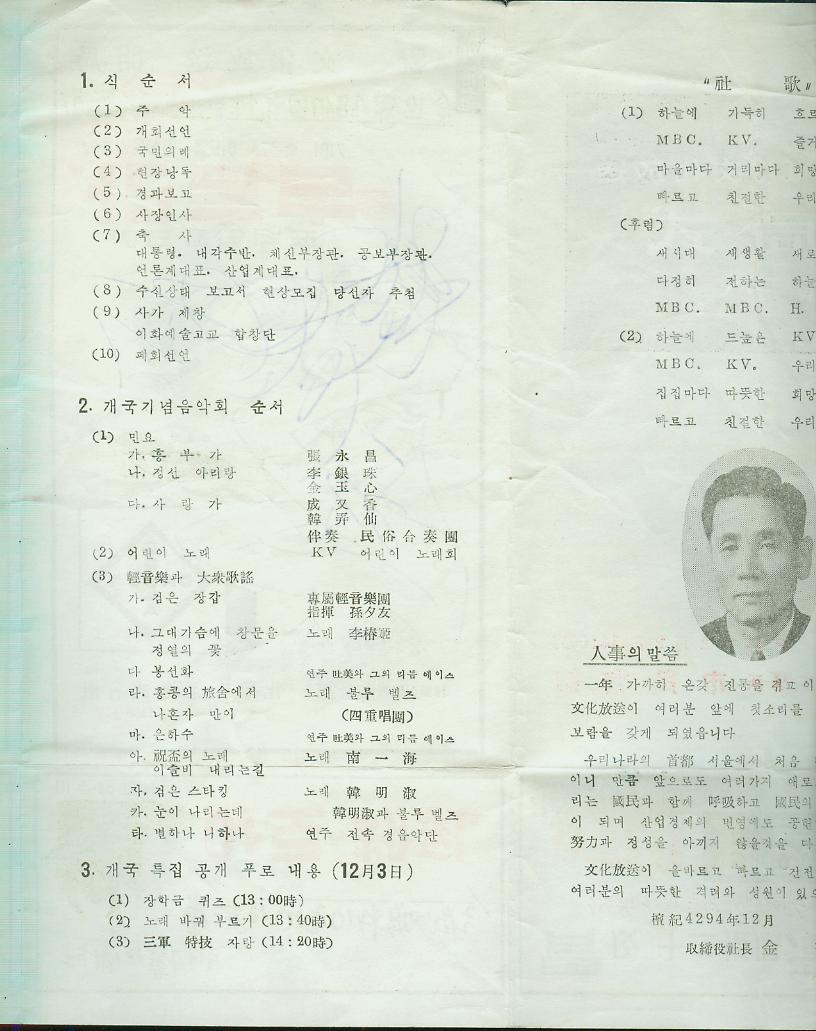 1. 식 순 서
(1) 주 악
(2) 개회선언
(3) 국민의례
(4) 헌장낭독
(5) 경과보고
(6) 사장인사
(7) 축 사
대통령. 내각수반. 체신부장관. 공보부장관.
언론계대표. 산업계대표.
(8) 수신상태 보고서 현상모집 당선자 추첨
(9) 사가 제창
이화예술고교 합창단
(10) 폐회선언
2. 개국기념음악회 순서
(1) 민요
가. 흥 부 가 張 永 昌
나. 정선 아리랑 李 銀 珠
金 玉 心
다. 사 랑 가 成 又 香
韓 弄 仙
伴奏 民俗合奏團
(2) 어린이 노래 KV 어린이 노래회
(3) 輕音樂과 大衆歌謠
가. 검은 장갑 專屬輕音樂團
指揮 孫夕友
나. 그대가슴에 창문을 노래 李椿姬
정열의 꽃
다 봉선화 연주 吐美와 그의 리듬 에이스
라. 홍콩의 旅舍에서 노래 불루 벨즈
나혼자 만이 (四重唱團)
마. 은하수 연주 吐美와 그의 리듬 에이스
아. 祝盃의 노래 노래 南 一 海
이슬비 내리는길
자. 검은 스타킹 노래 韓 明 淑
카. 눈이 나리는데 韓明淑과 불루 벨즈
타. 별하나 나하나 연주 전속 경음악단
3. 개국 특집 공개 푸로 내용 (12月3日)
(1) 장학금 퀴즈 (13:00時)
(2) 노래 바꿔 부르기 (13:40時)
(3) 三軍 特技 자랑 (14:20時)
“社 歌”
(1) 하늘에 가득히 흐르
MBC. KV. 즐거
마을마다 거리마다 희망
빠르고 친절한 우리
(후렴)
새시대 새생활 새로
다정히 전하는 하늘
MBC. MBC. H.
(2) 하늘에 드높은 KV
MBC. KV. 우리
집집마다 따뜻한 희망
빠르고 친절한 우리
人事의 말씀
一年 가까히 온갖 진통을 겪고 이
文化放送이 여러분 앞에 첫소리를
보람을 갖게 되었읍니다
우리나라의 首都 서울에서 처음
이니 만큼 앞으로도 여러가지 애로
리는 國民과 함께 呼吸하고 國民의
이 되며 산업경제의 번영에도 공헌
努力과 정성을 아끼지 않을것을 다
文化放送이 올바르고 빠르고 건전
여러분의 따뜻한 격려와 성원이 있으
檀紀4294年12月
取締役社長 金